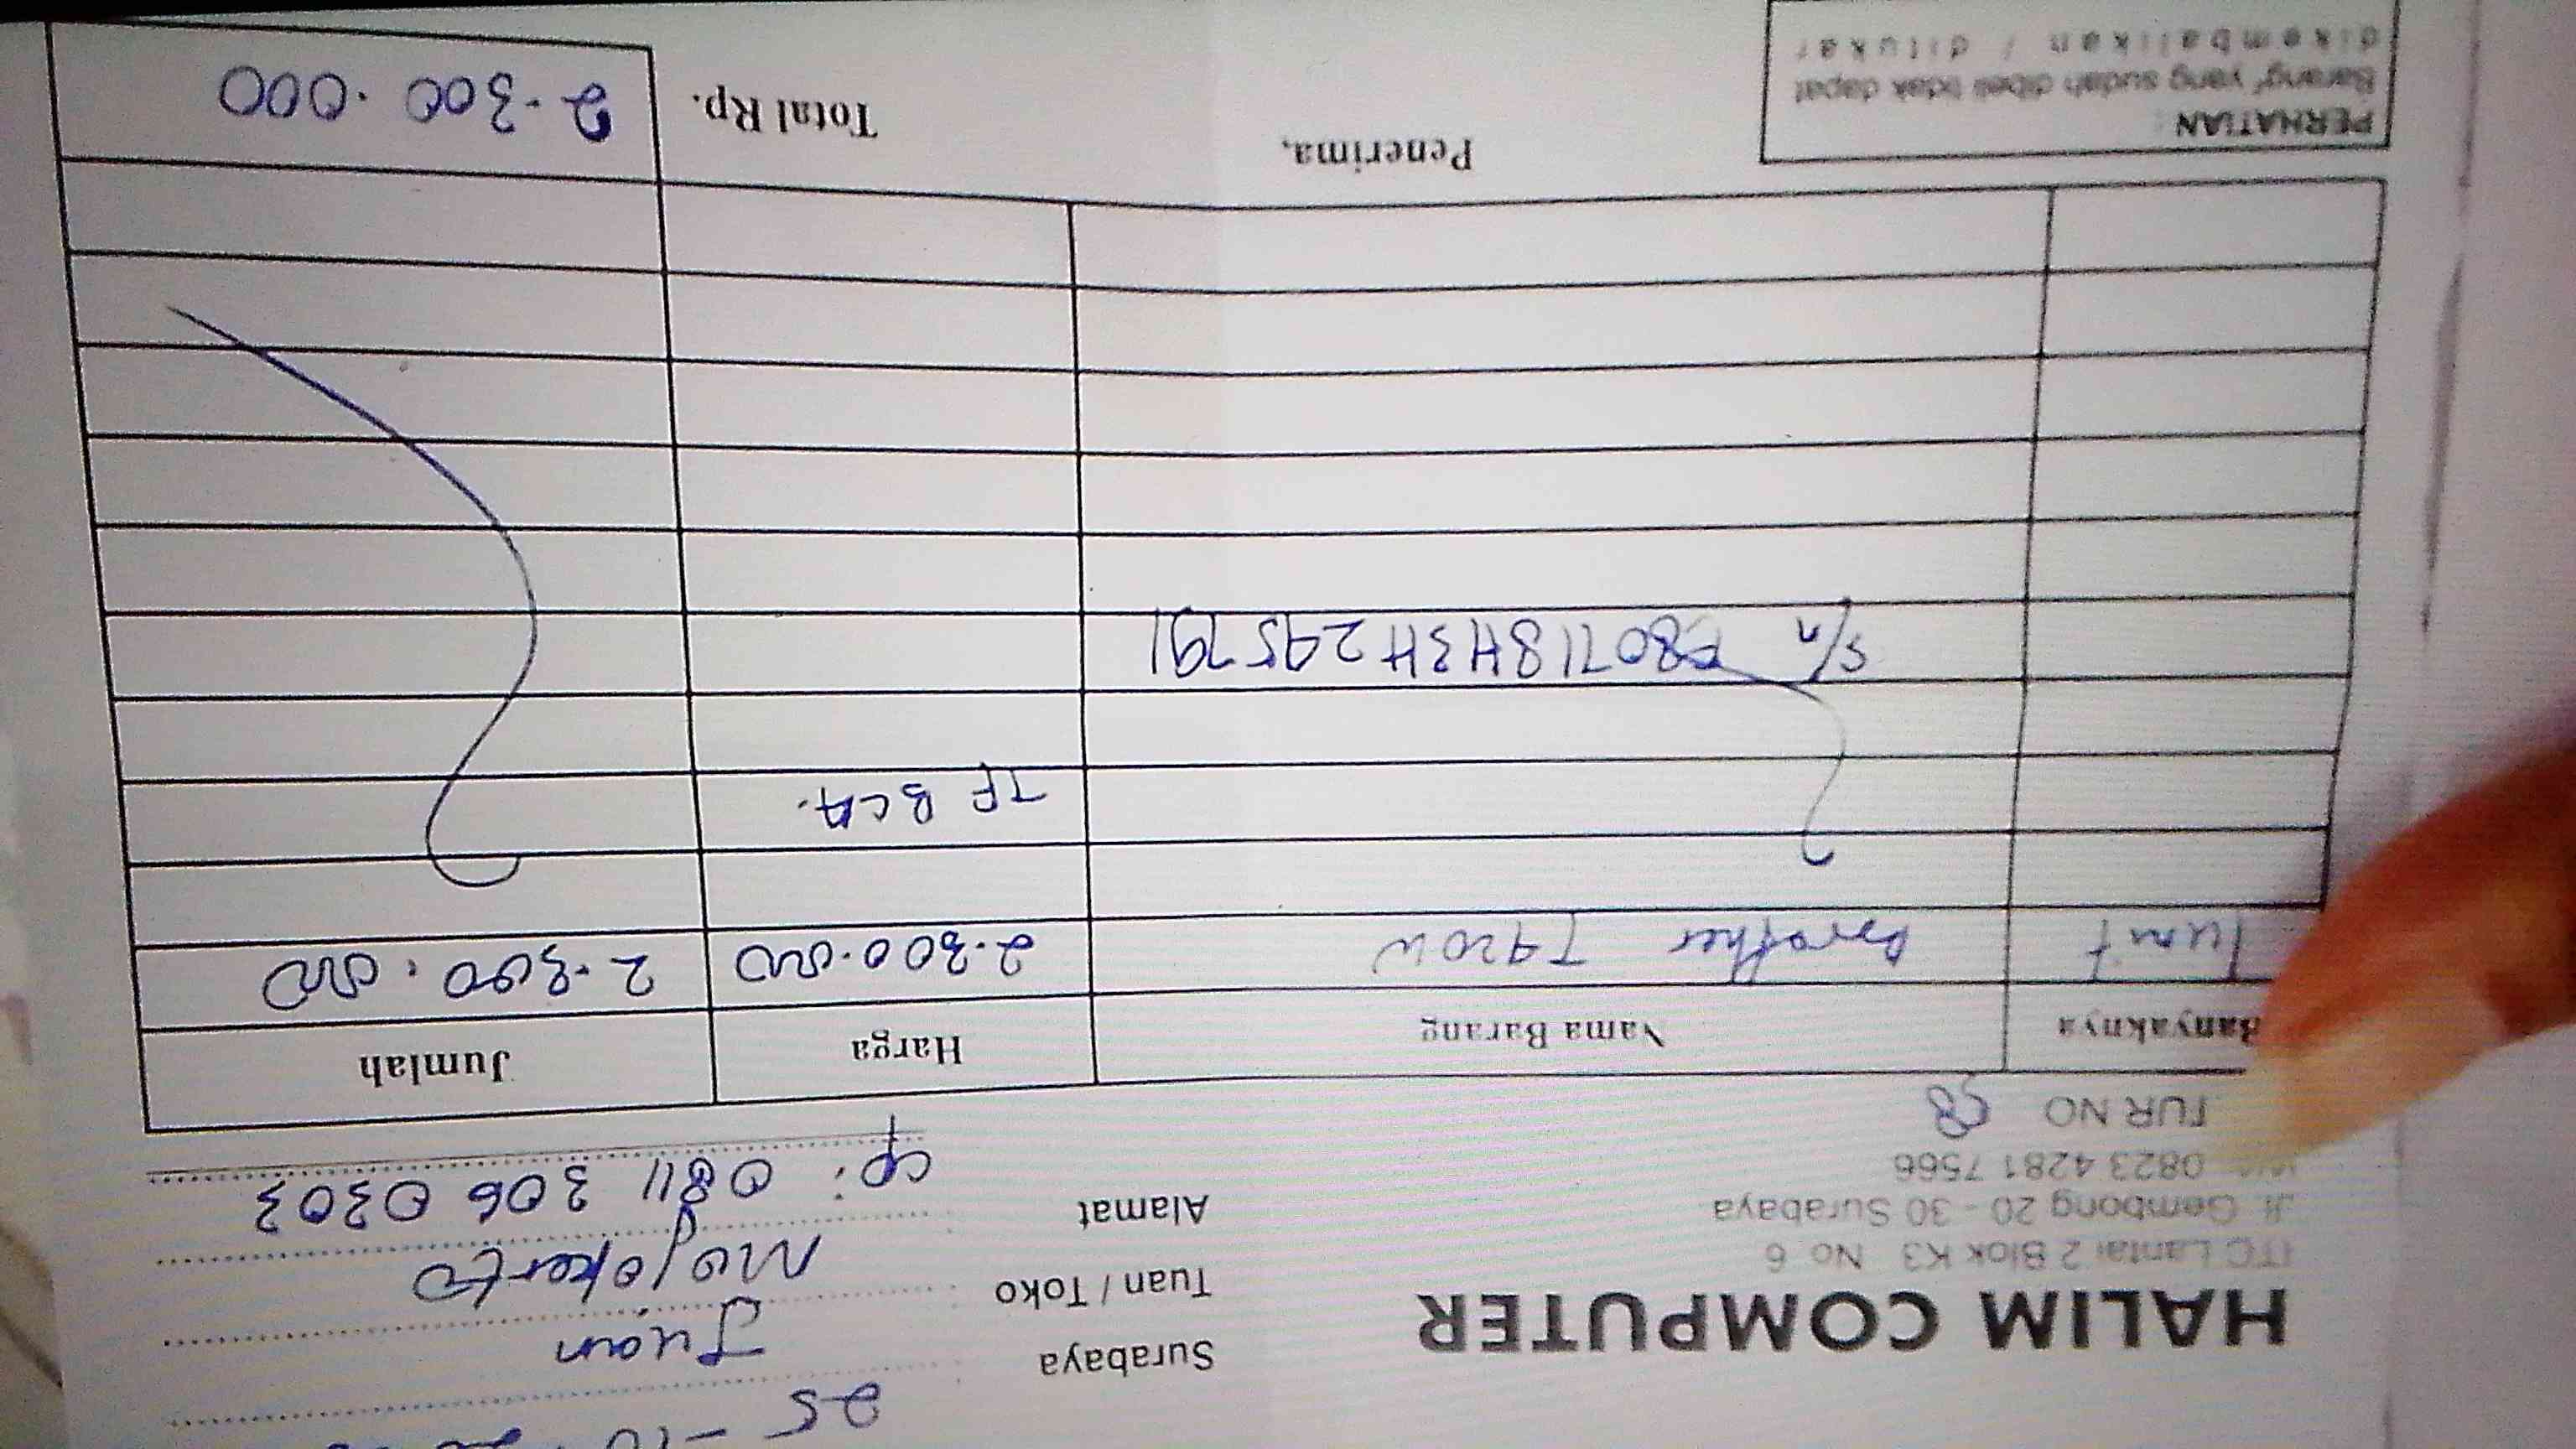 HALIM COMPUTER
ITC Lantai 2 Blok K3 No. 6
Jl. Gembong 20 - 30 Surabaya
0823 4281 7566
TUR NO 58
25 - 10
Surabaya
Tuan / Toko
Alamat
Mojokerto
cp: 0811 306 0303
Banyaknya Nama Barang Harga Jumlah
1 unit Brother T920W 2.300.000 2.300.000
TF BCA.
S/n E80718H3H295791
PERHATIAN
Barang² yang sudah dibeli tidak dapat
dikembalikan / ditukar
Penerima,
Total Rp. 2.300.000